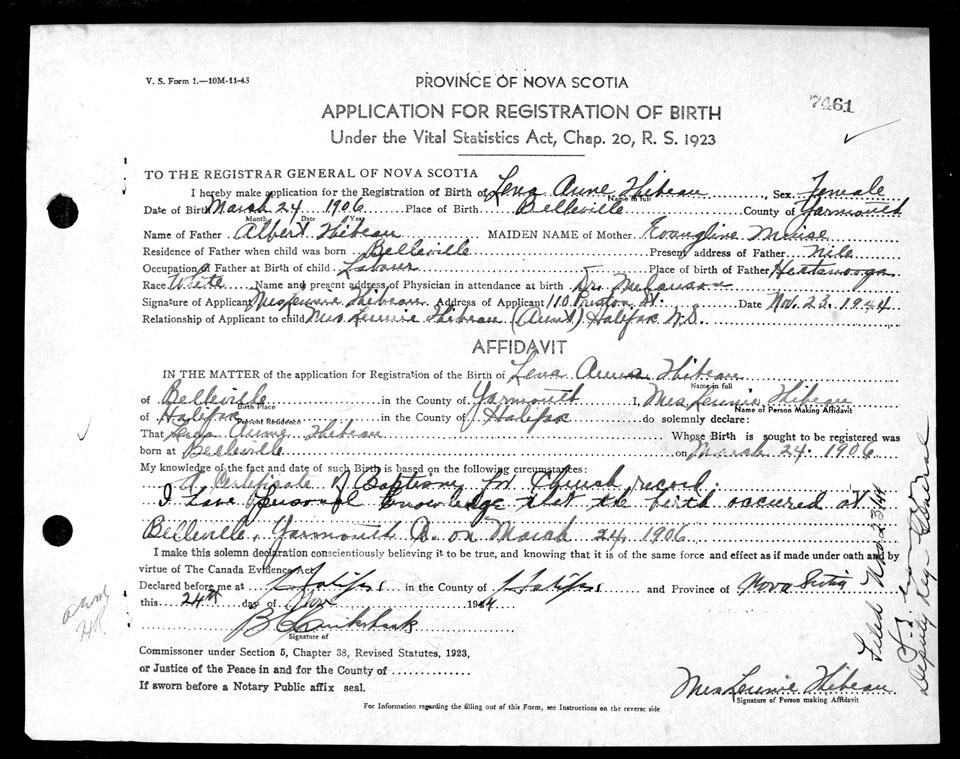 V. S. Form 1.—10M-11-43
PROVINCE OF NOVA SCOTIA
7461
APPLICATION FOR REGISTRATION OF BIRTH
Under the Vital Statistics Act, Chap. 20, R. S. 1923
TO THE REGISTRAR GENERAL OF NOVA SCOTIA
I hereby make application for the Registration of Birth of Lena Anne Thibeau, Sex Female
Name in full
Date of Birth March 24 1906 Place of Birth Belleville County of Yarmouth
Month Date Year
Name of Father Albert Thibeau MAIDEN NAME of Mother Evangline Muise
Residence of Father when child was born Belleville Present address of Father Nile
Occupation of Father at Birth of child Labour Place of Birth of Father
Race White Name and present address of Physician in attendance at birth Dr.
Signature of Applicant Mrs Lennie Thibeau Address of Applicant 110 Preston St. Date Nov. 23. 1944
Relationship of Applicant to child Mrs Lennie Thibeau (Aunt) Halifax N.S.
AFFIDAVIT
IN THE MATTER of the application for Registration of the Birth of Lena Anna Thibeau
Name in full
of Belleville in the County of Yarmouth I, Mrs Lennie Thibeau
Birth Place Name of Person Making Affidavit
of Halifax in the County of Halifax do solemnly declare:
Present Residence
That Lena Anne Thibeau Whose Birth is sought to be registered was
born at Belleville on March 24. 1906
My knowledge of the fact and date of such Birth is based on the following circumstances:
A Certificate of Baptism for Church record.
I have personal knowledge that the birth occured at
Belleville, Yarmouth Co. on March 24 1906
I make this solemn declaration conscientiously believing it to be true, and knowing that it is of the same force and effect as if made under oath and by
virtue of The Canada Evidence Act.
Declared before me at Halifax in the County of Halifax and Province of Nova Scotia
this 24th day of Nov 1944
Signature of
Commissioner under Section 5, Chapter 38, Revised Statutes, 1923,
or Justice of the Peace in and for the County of
If sworn before a Notary Public affix seal.
Mrs Lennie Thibeau
Signature of Person making Affidavit
For Information regarding the filling out of this Form, see Instructions on the reverse side
Filed Nov 23/44
Deputy Reg General